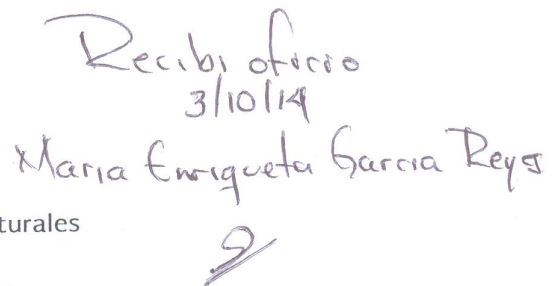 Recibi oficio
3/10/14
Maria Enriqueta Garcia Reyes
turales